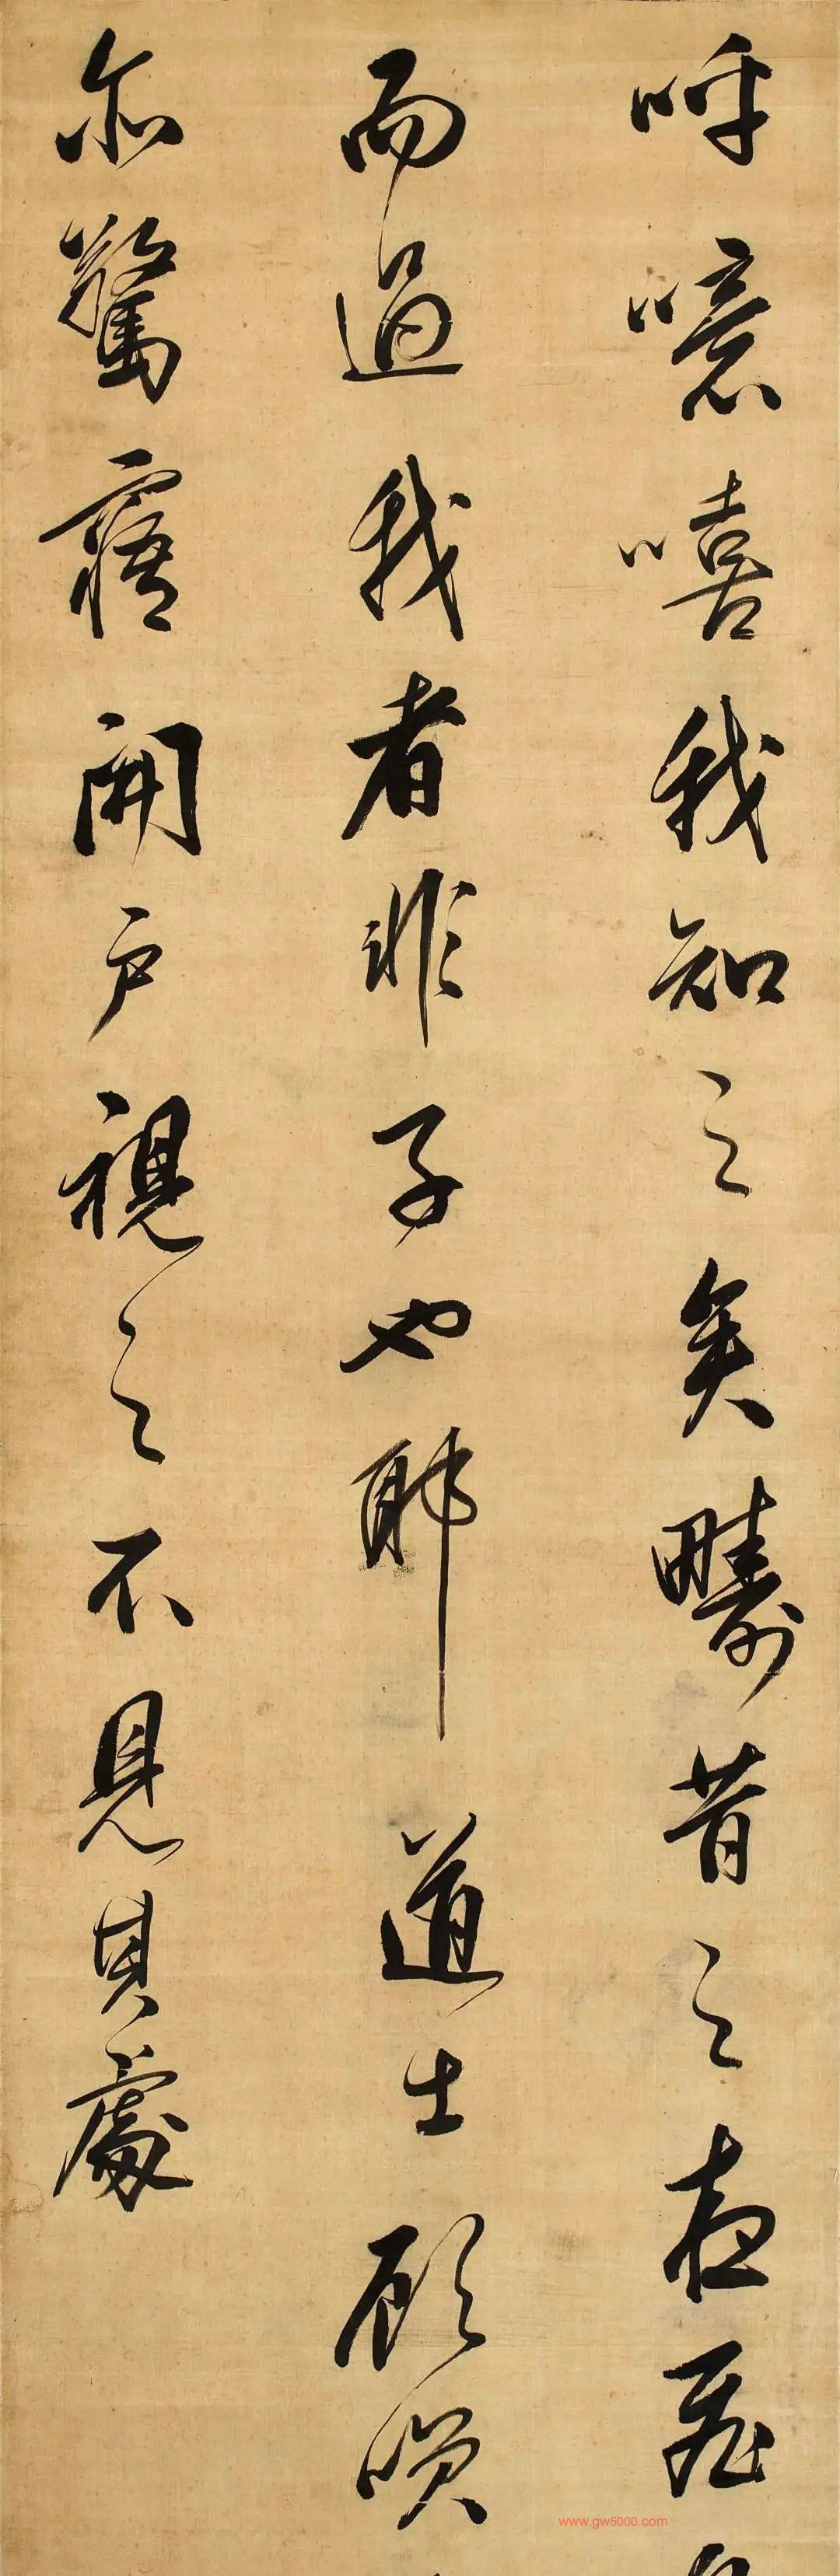 呼噫嘻我知之矣疇昔之夜飛
而過我者非子也耶道士顧笑
亦驚寤開戶視之不見其處
www.gw5000.com